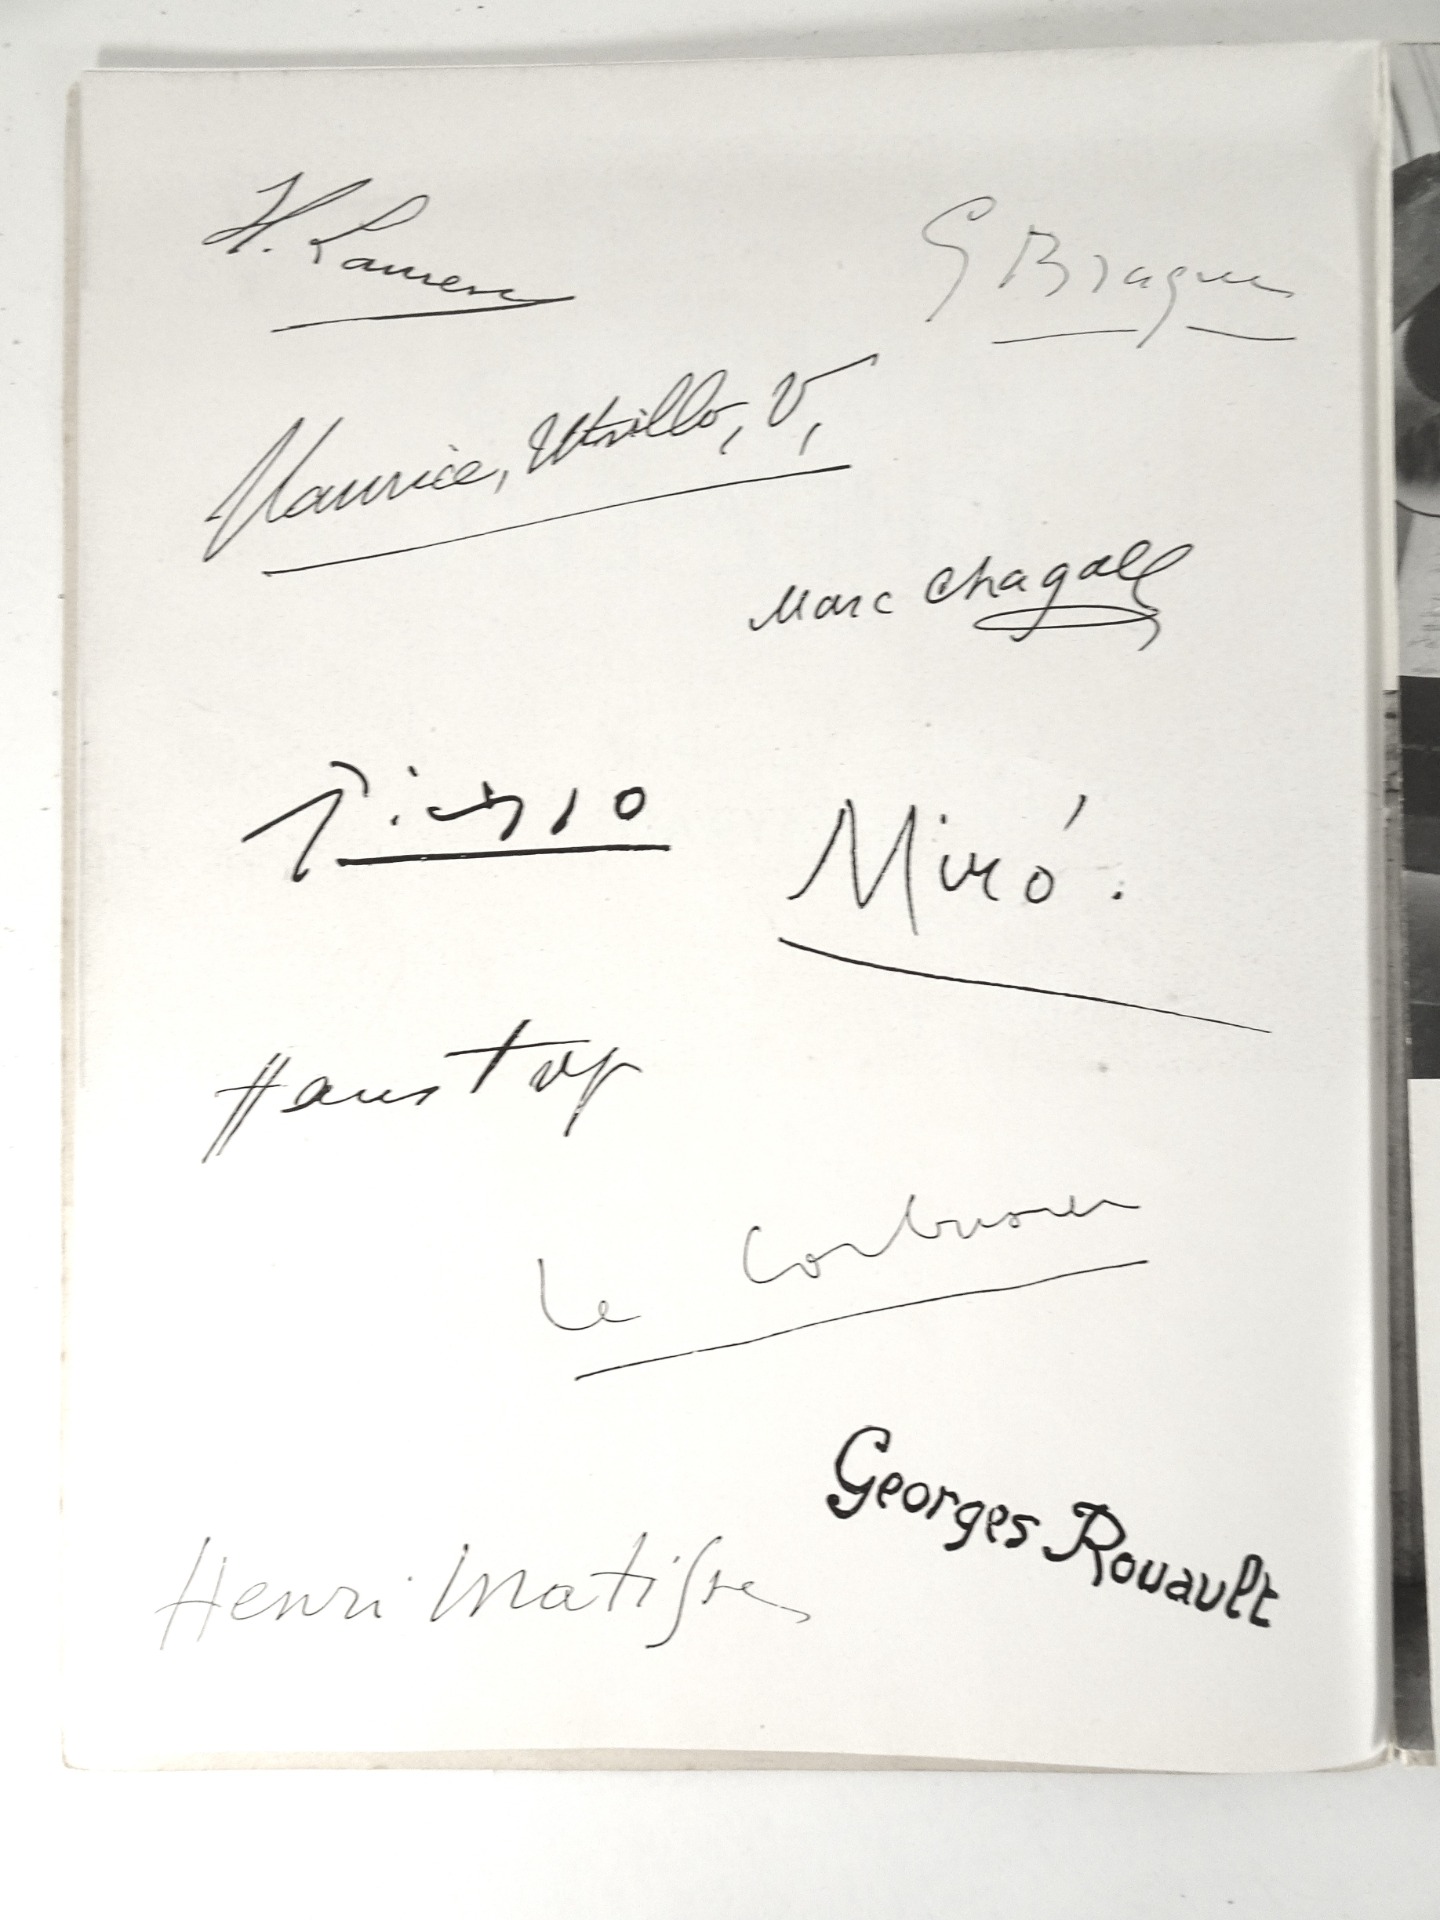 H. Laurens
G Braque
Maurice, Utrillo, V,
Marc Chagall
Picasso
Miró.
Hans Arp
Le Corbusier
Georges Rouault
Henri Matisse